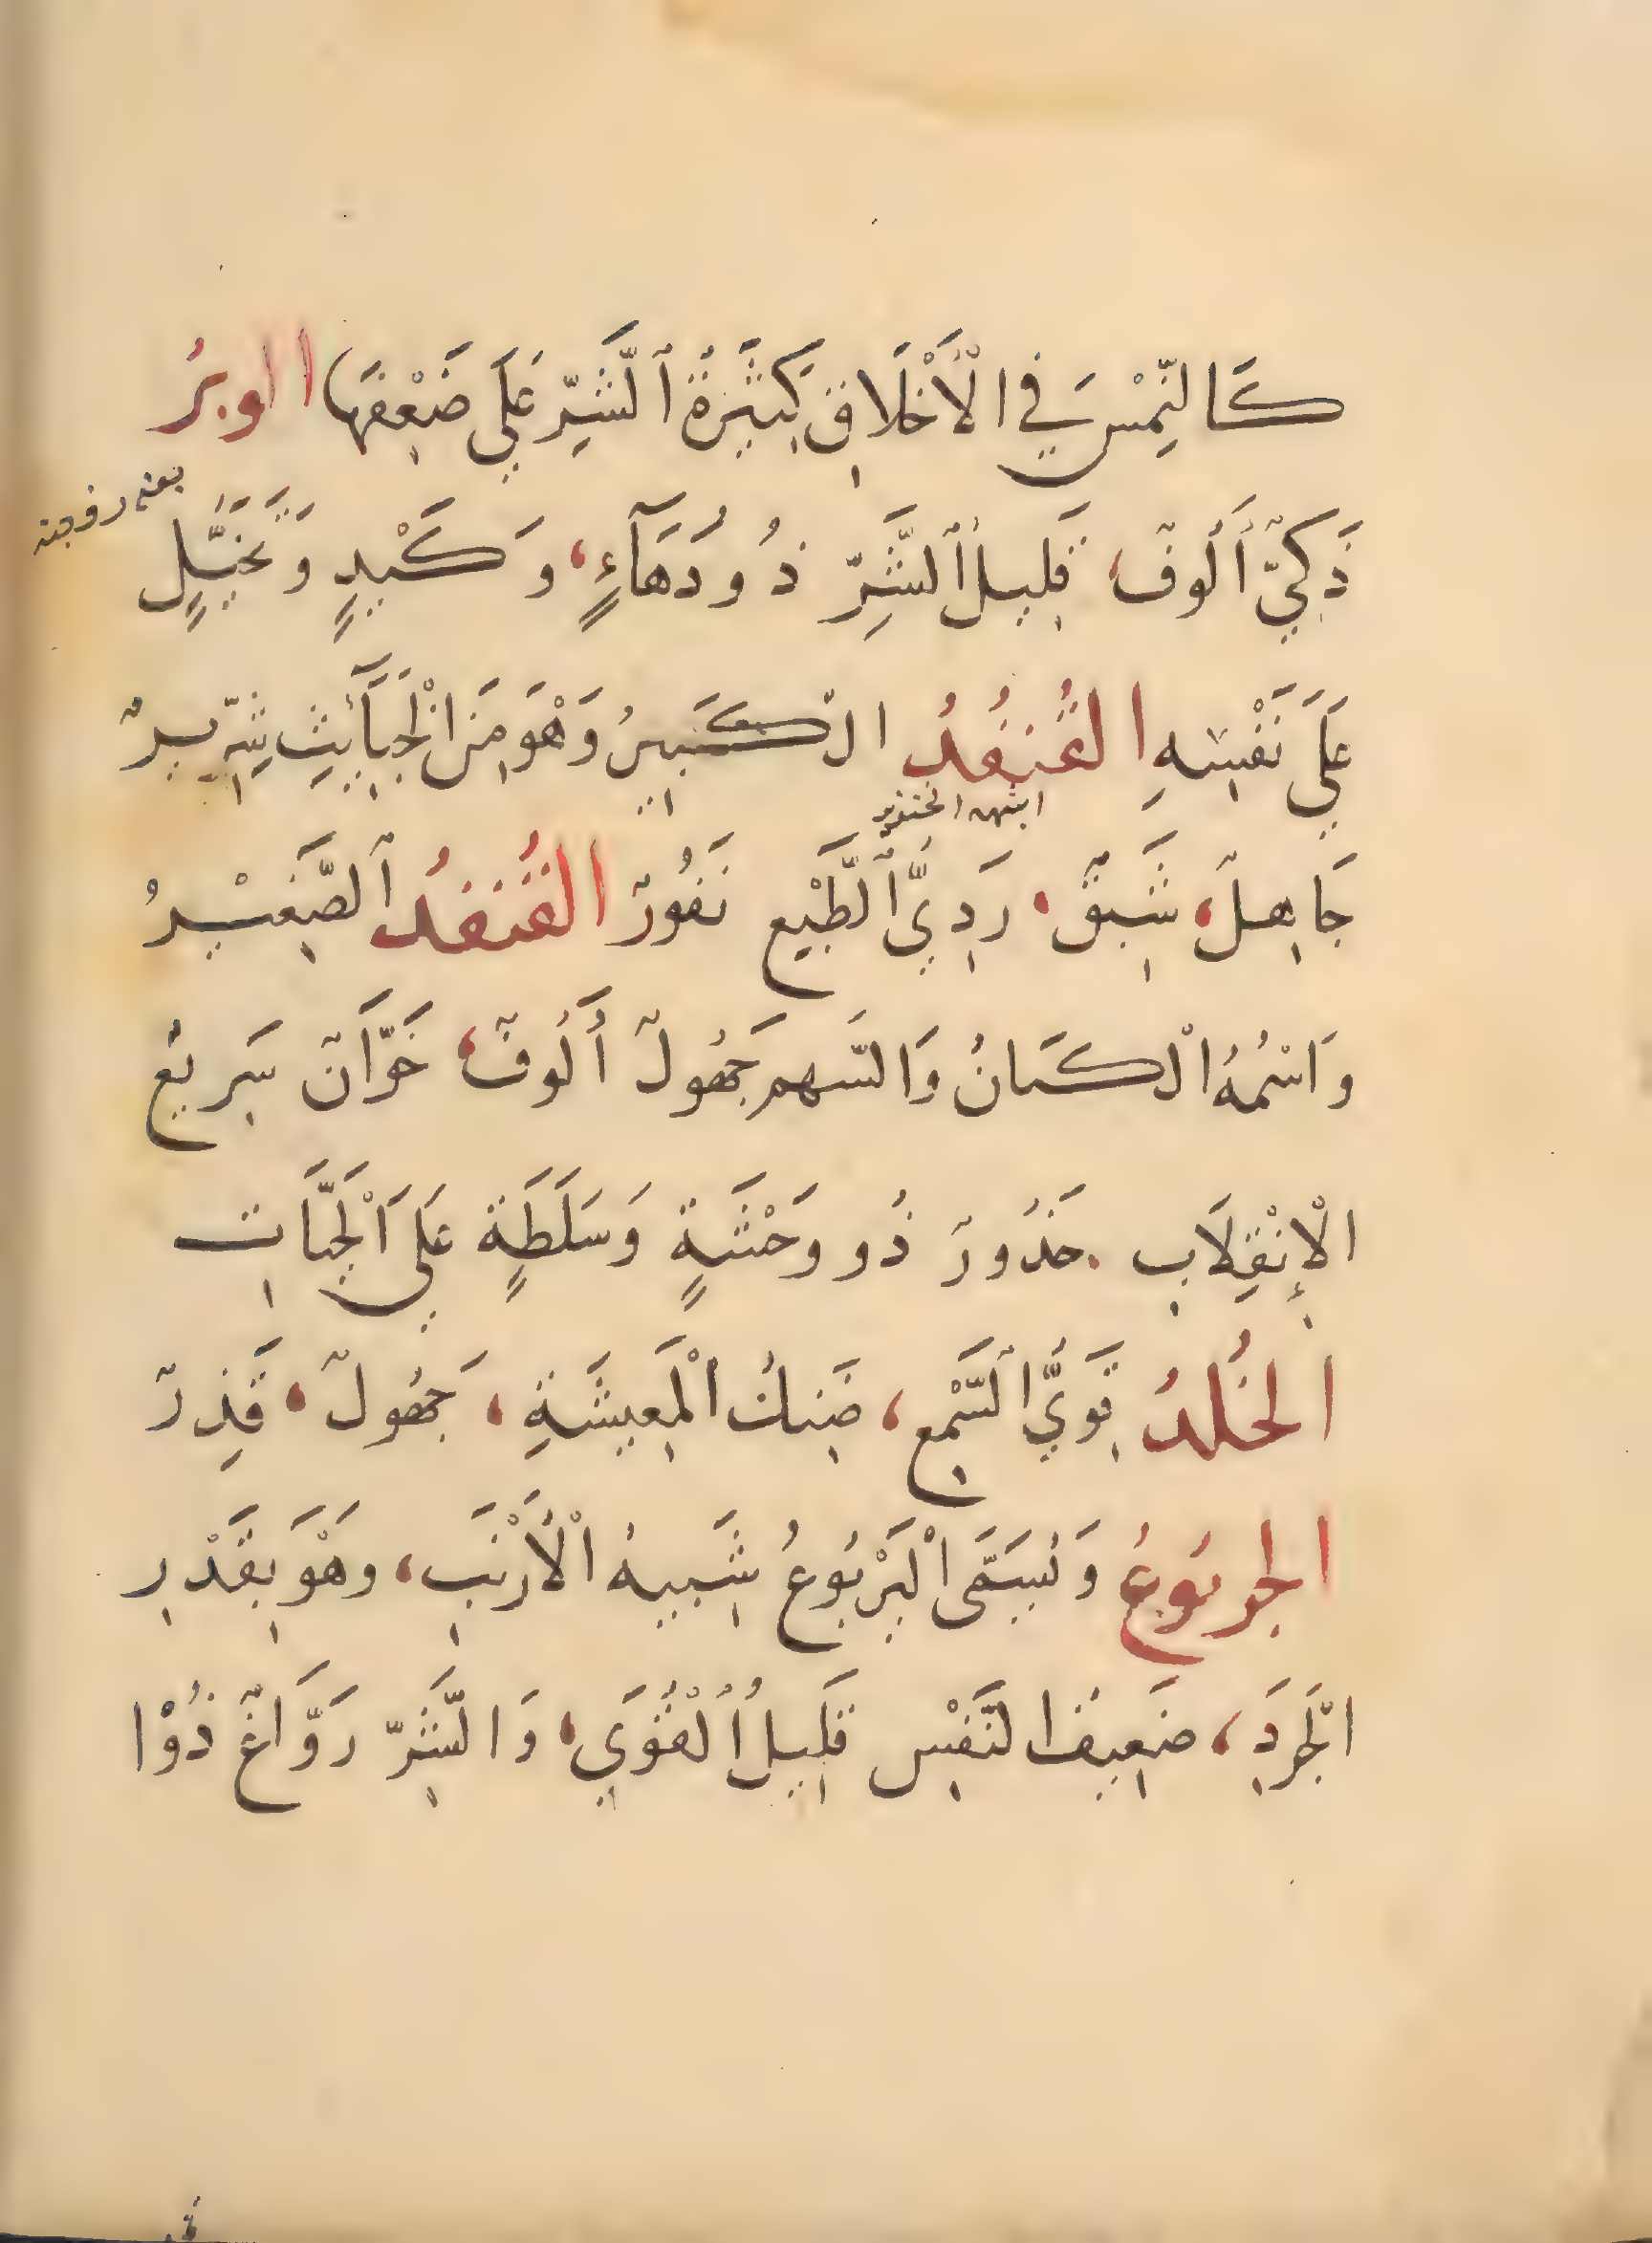 كَالنِّمْسِ فِي الْأَخْلَاقِ كَثِيْرَةُ ٱلشَّرِّ عَلَى ضَعْفِهَا الوبرُ
ذَكِيٌّ أَلُوفٌ، قَلِيلُ ٱلشَّرِّ ذُو دَهَآءٍ، وَكَيْدٍ وَتَحَيُّلٍ
عَلَى نَفْسِهِ القُنفُدُ الْكَبِيرُ وَهْوَ مِنَ الْخَبَآئِثِ شِرِّيرٌ
جَاهِلٌ، شَبِقٌ، رَدِيُّ ٱلطَّبْعِ نَفُورٌ القُنفُدُ ٱلصَّغِيْرُ
وَاسْمُهُ الْكَمَانُ وَالسَّهم جَهُولٌ أَلُوفٌ، خَوَّانٌ سَرِيعُ
الْإِنْقِلَابِ، حَذُورٌ ذُو وَحْشَةٍ وَسَلَطَةٍ عَلَى اَلْحَيَّاتِ
الخُلدُ قَوِيُّ السَّمْعِ، ضَنِكُ الْمَعِيشَةِ، جَهُولٌ، قَذِرٌ
الجربُوعُ وَيُسَمَّى الْيَرْبُوعُ شَبِيهُ الْأَرْنَبِ، وَهْوَ بِقَدْرِ
الْجُرَدِ، ضَعِيفُ النَّفْسِ قَلِيلُ ٱلْقُوَى، وَالشَّرِّ رَوَّاغٌ ذُوْا